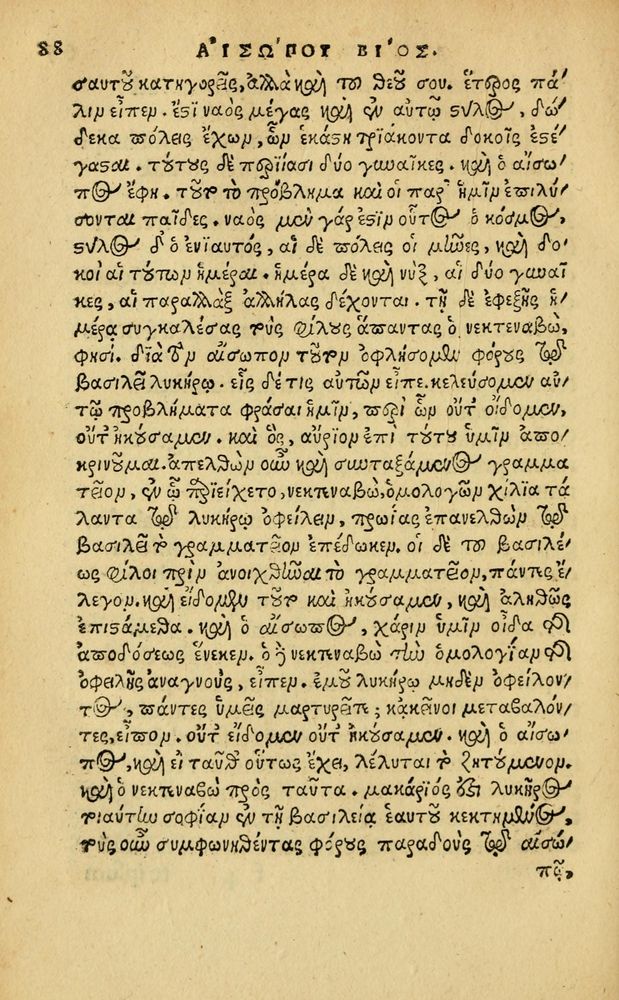 88 ΑἸΣΏΠΟΥ ΒΊΟΣ.
σαυτοῦ κατηγορεῖς, ἀλλὰ καὶ τοῦ θεοῦ σου. ἕτερος πά/
λιν εἶπεν. ἔστι ναὸς μέγας καὶ ἐν αὐτῷ στύλος, δώ/
δεκα πόλεις ἔχων, ὧν ἑκάστη τριάκοντα δοκοῖς ἐστέ/
γασται. ταύτας δὲ περιίασι δύο γυναῖκες. καὶ ὁ αἴσω/
πος ἔφη. τοῦτο τὸ πρόβλημα καὶ οἱ παρ' ἡμῖν ἐπιλύ/
σονται παῖδες. ναὸς μὲν γάρ ἐστιν οὗτος ὁ κόσμος,
στύλος δ' ὁ ἐνιαυτός, αἱ δὲ πόλεις οἱ μῆνες, καὶ δο/
κοὶ αἱ τούτων ἡμέραι. ἡμέρα δὲ καὶ νὺξ, αἱ δύο γυναῖ
κες, αἳ παραλλὰξ ἀλλήλας δέχονται. τῇ δὲ ἐφεξῆς ἡ/
μέρᾳ συγκαλέσας τοὺς φίλους ἅπαντας ὁ νεκτεναβὼ,
φησί. διὰ τὸν αἴσωπον τοῦτον ὀφλήσομεν φόρους τῷ
βασιλεῖ λυκήρῳ. εἷς δέ τις αὐτῶν εἶπε. κελεύσομεν αὐ/
τῷ προβλήματα φράσαι ἡμῖν, περὶ ὧν οὔτ' οἴδομεν,
οὔτ' ἠκούσαμεν. καὶ ὃς, αὔριον ἐπὶ τούτου ὑμῖν ἀπο/
κρινοῦμαι. ἀπελθὼν οὖν καὶ συνταξάμενος γραμμα
τεῖον, ἐν ᾧ περιείχετο, νεκτεναβὼ, ὁμολογῶν χίλια τά
λαντα τῷ λυκήρῳ ὀφείλειν, πρωίας ἐπανελθὼν τῷ
βασιλεῖ τὸ γραμματεῖον ἐπέδωκεν. οἱ δὲ τοῦ βασιλέ/
ως φίλοι πρὶν ἀνοιχθῆναι τὸ γραμματεῖον, πάντες ἔ/
λεγον. καὶ εἴδομεν τοῦτο καὶ ἠκούσαμεν, καὶ ἀληθῶς
ἐπιστάμεθα. καὶ ὁ αἴσωπος, χάριν ὑμῖν οἶδα τῆς
ἀποδόσεως ἕνεκεν. ὁ δὲ νεκτεναβὼ τὴν ὁμολογίαν τῆς
ὀφειλῆς ἀναγνοὺς, εἶπεν. ἐμοῦ λυκήρῳ μηδὲν ὀφείλον/
τος, πάντες ὑμεῖς μαρτυρεῖτε; κἀκεῖνοι μεταβαλόν/
τες, εἶπον. οὔτ' εἴδομεν οὔτ' ἠκούσαμεν. καὶ ὁ αἴσω/
πος, καὶ εἰ ταῦθ' οὕτως ἔχει, λέλυται τὸ ζητούμενον.
καὶ ὁ νεκτεναβὼ πρὸς ταῦτα. μακάριός ἐστι λυκῆρος
τοιαύτην σοφίαν ἐν τῇ βασιλείᾳ ἑαυτοῦ κεκτημένος,
τοὺς οὖν συμφωνηθέντας φόρους παραδοὺς τῷ αἰσώ/
πῳ,